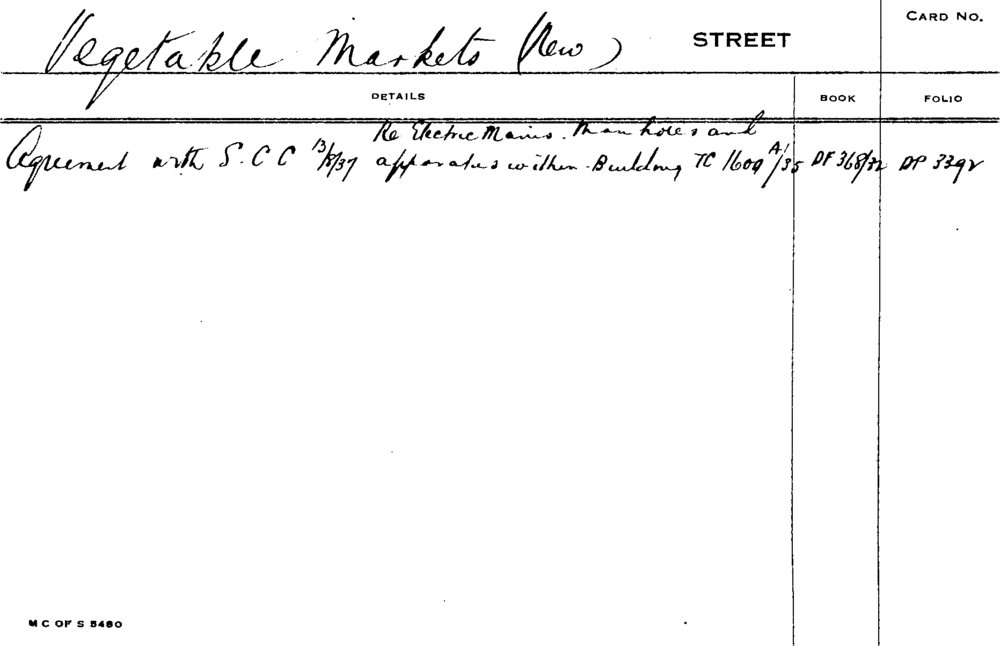 Vegetable Markets (New) STREET
CARD NO.
DETAILS BOOK FOLIO
Re Electric Mains. Man holes and
Agreement with S.C.C 13/8/37 apparatus within Building TC 1600 A1/35 DF 368/32 DP 3392
M C OF S 5480